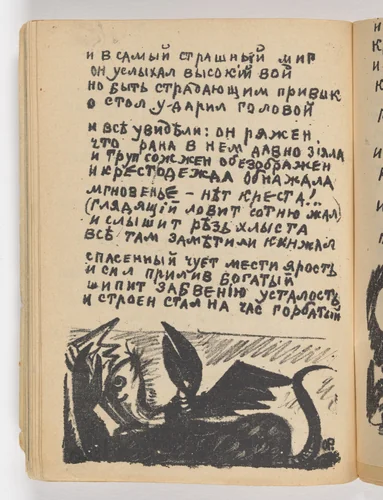 и в самый страшный миг
он услыхал высокій вой
но быть страдающим привык
о стол ударил головой
и всѣ увидѣли: он ряжен,
что рана в нем давно зіяла
и труп сожжен обезображен
и крест одежда обнажала
мгновенье – нѣт креста!..
(глядящій ловит сотню жал)
и слышит рѣзь хлыста
всѣ там замѣтили кинжал
спасенный чует мести ярость
и сил прилив богатый
шипит забвенію усталость
и строен стал на час горбатый